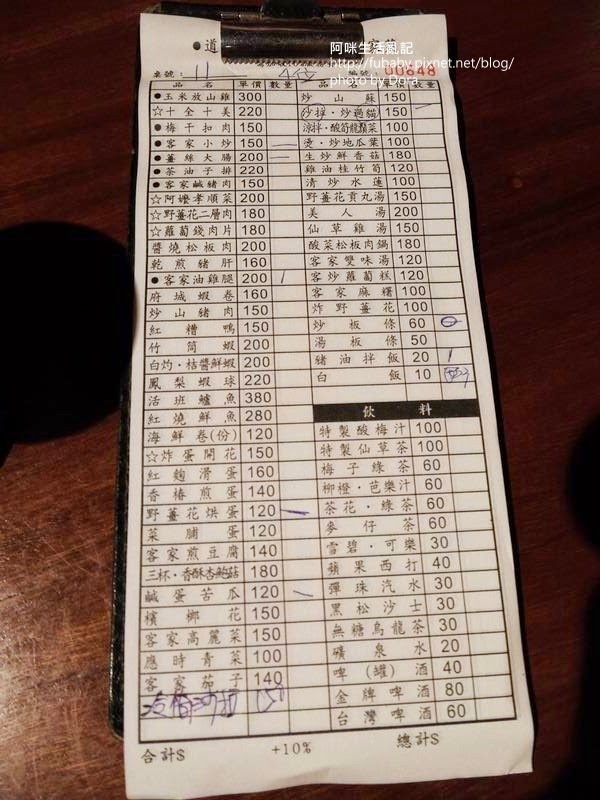 阿咪生活亂記
http://fubaby.pixnet.net/blog/
photo by Dora
●道
桌號： 11
00848
品 名 單價 數量 品 名 單價 數量
●玉米放山雞 300 炒山蘇 150
☆十全十美 220 沙拌・炒過貓 150
●梅干扣肉 150 涼拌・酸筍龍鬚菜 100
●客家小炒 150 二 燙・炒地瓜葉 100
●薑絲大腸 200 二 生炒鮮香菇 180
●茶油子排 220 雞油桂竹筍 120
●客家鹹豬肉 150 清炒水蓮 100
☆阿嬤孝順菜 200 野薑花貢丸湯 150
☆野薑花二層肉 180 美人湯 200
☆蘿蔔錢肉片 180 仙草雞湯 150
醬燒松板肉 200 酸菜松板肉鍋 180
乾煎豬肝 160 客家雙味湯 120
●客家油雞腿 200 1 客炒蘿蔔糕 120
府城蝦卷 160 客家麻糬 100
炒山豬肉 150 炸野薑花 100
紅糟鴨 150 炒粄條 60
竹筒蝦 200 湯粄條 50
白灼・桔醬鮮蝦 200 豬油拌飯 20 1
鳳梨蝦球 220 白飯 10
活班鱸魚 380
紅燒鮮魚 280 飲料
海鮮卷(份) 120 特製酸梅汁 100
☆炸蛋開花 150 特製仙草茶 100
紅麴滑蛋 160 梅子綠茶 60
香椿煎蛋 140 柳橙・芭樂汁 60
野薑花烘蛋 120 一 茶花・綠茶 60
菜脯蛋 120 麥仔茶 60
客家煎豆腐 140 雪碧・可樂 30
三杯・香酥杏鮑菇 180 蘋果西打 40
鹹蛋苦瓜 120 一 彈珠汽水 30
檳榔花 150 黑松沙士 30
客家高麗菜 150 無糖烏龍茶 30
應時青菜 100 礦泉水 20
客家茄子 140 啤(罐)酒 40
金牌啤酒 80
台灣啤酒 60
合計$ +10% 總計$